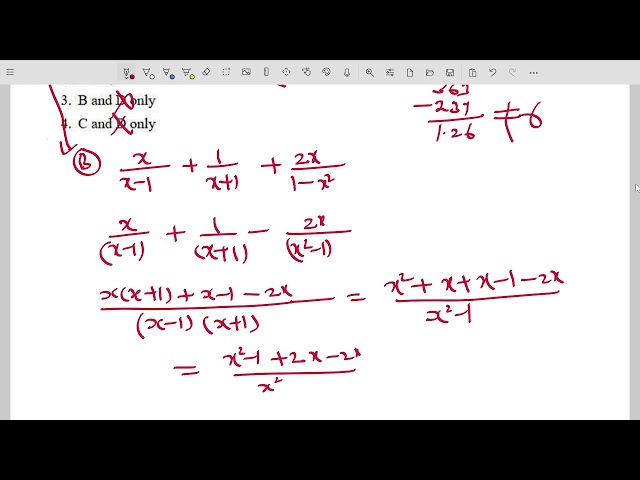 3. B and D only
4. C and D only
- 237
1.26 ≠ 6
B x/(x-1) + 1/(x+1) + 2x/(1-x²)
x/(x-1) + 1/(x+1) - 2x/(x²-1)
(x(x+1) + x-1-2x)/((x-1)(x+1)) = (x² + x + x-1-2x)/(x²-1)
= (x²-1+2x-2x)/x²